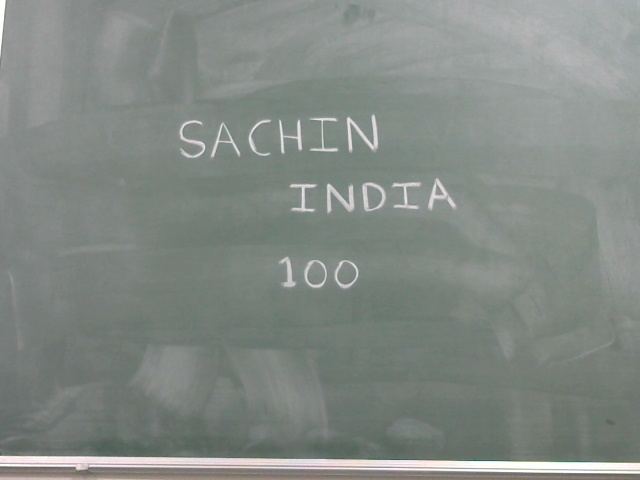 SACHIN
INDIA
100